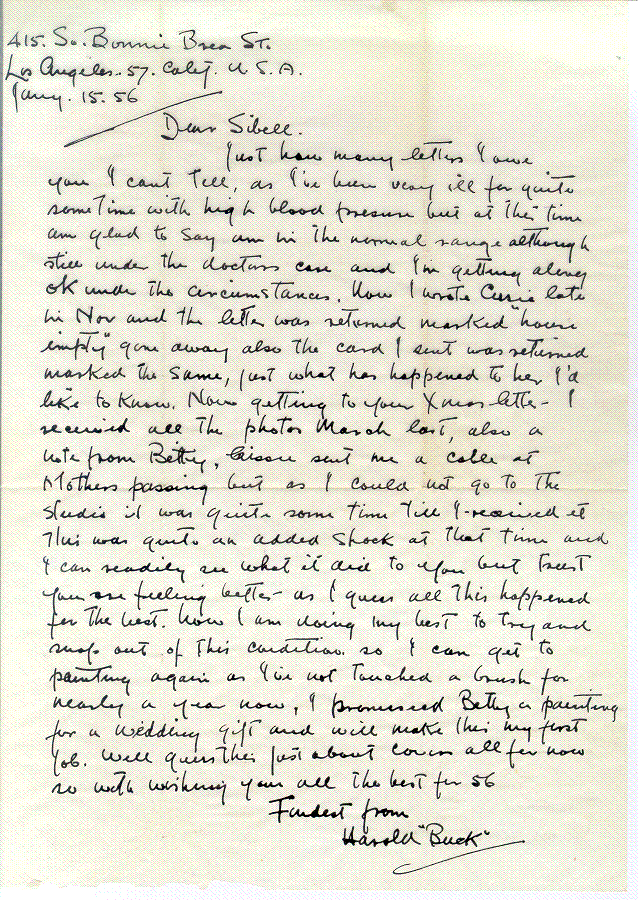 415. So. Bonnie Brea St.
Los Angeles. 57. Calif. U.S.A.
Jany. 15. 56
Dear Sibell.
Just how many letters I owe
you I cant tell, as I've been very ill for quite
sometime with high blood presure but at this time
am glad to say am in the normal range although
still under the doctors care and I'm getting along
OK under the circumstances. Now I wrote Cissie late
in Nov and the letter was returned marked "house
empty" gone away also the card I sent was returned
marked the same, just what has happened to her I'd
like to know. Now getting to your Xmas letter - I
received all the photos March last, also a
note from Betty, Cissie sent me a cable at
Mothers passing but as I could not go to the
studio it was quite some time till I received it
This was quite an added shock at that time and
I can readily see what it did to you but trust
you are feeling better - as I guess all this happened
for the best. Now I am doing my best to try and
snap out of this condition so I can get to
painting again as I've not touched a brush for
nearly a year now, I promised Betty a painting
for a wedding gift and will make this my first
job. Well guess this just about covers all for now
so with wishing you all the best for 56
Fondest from
Harold "Buck"